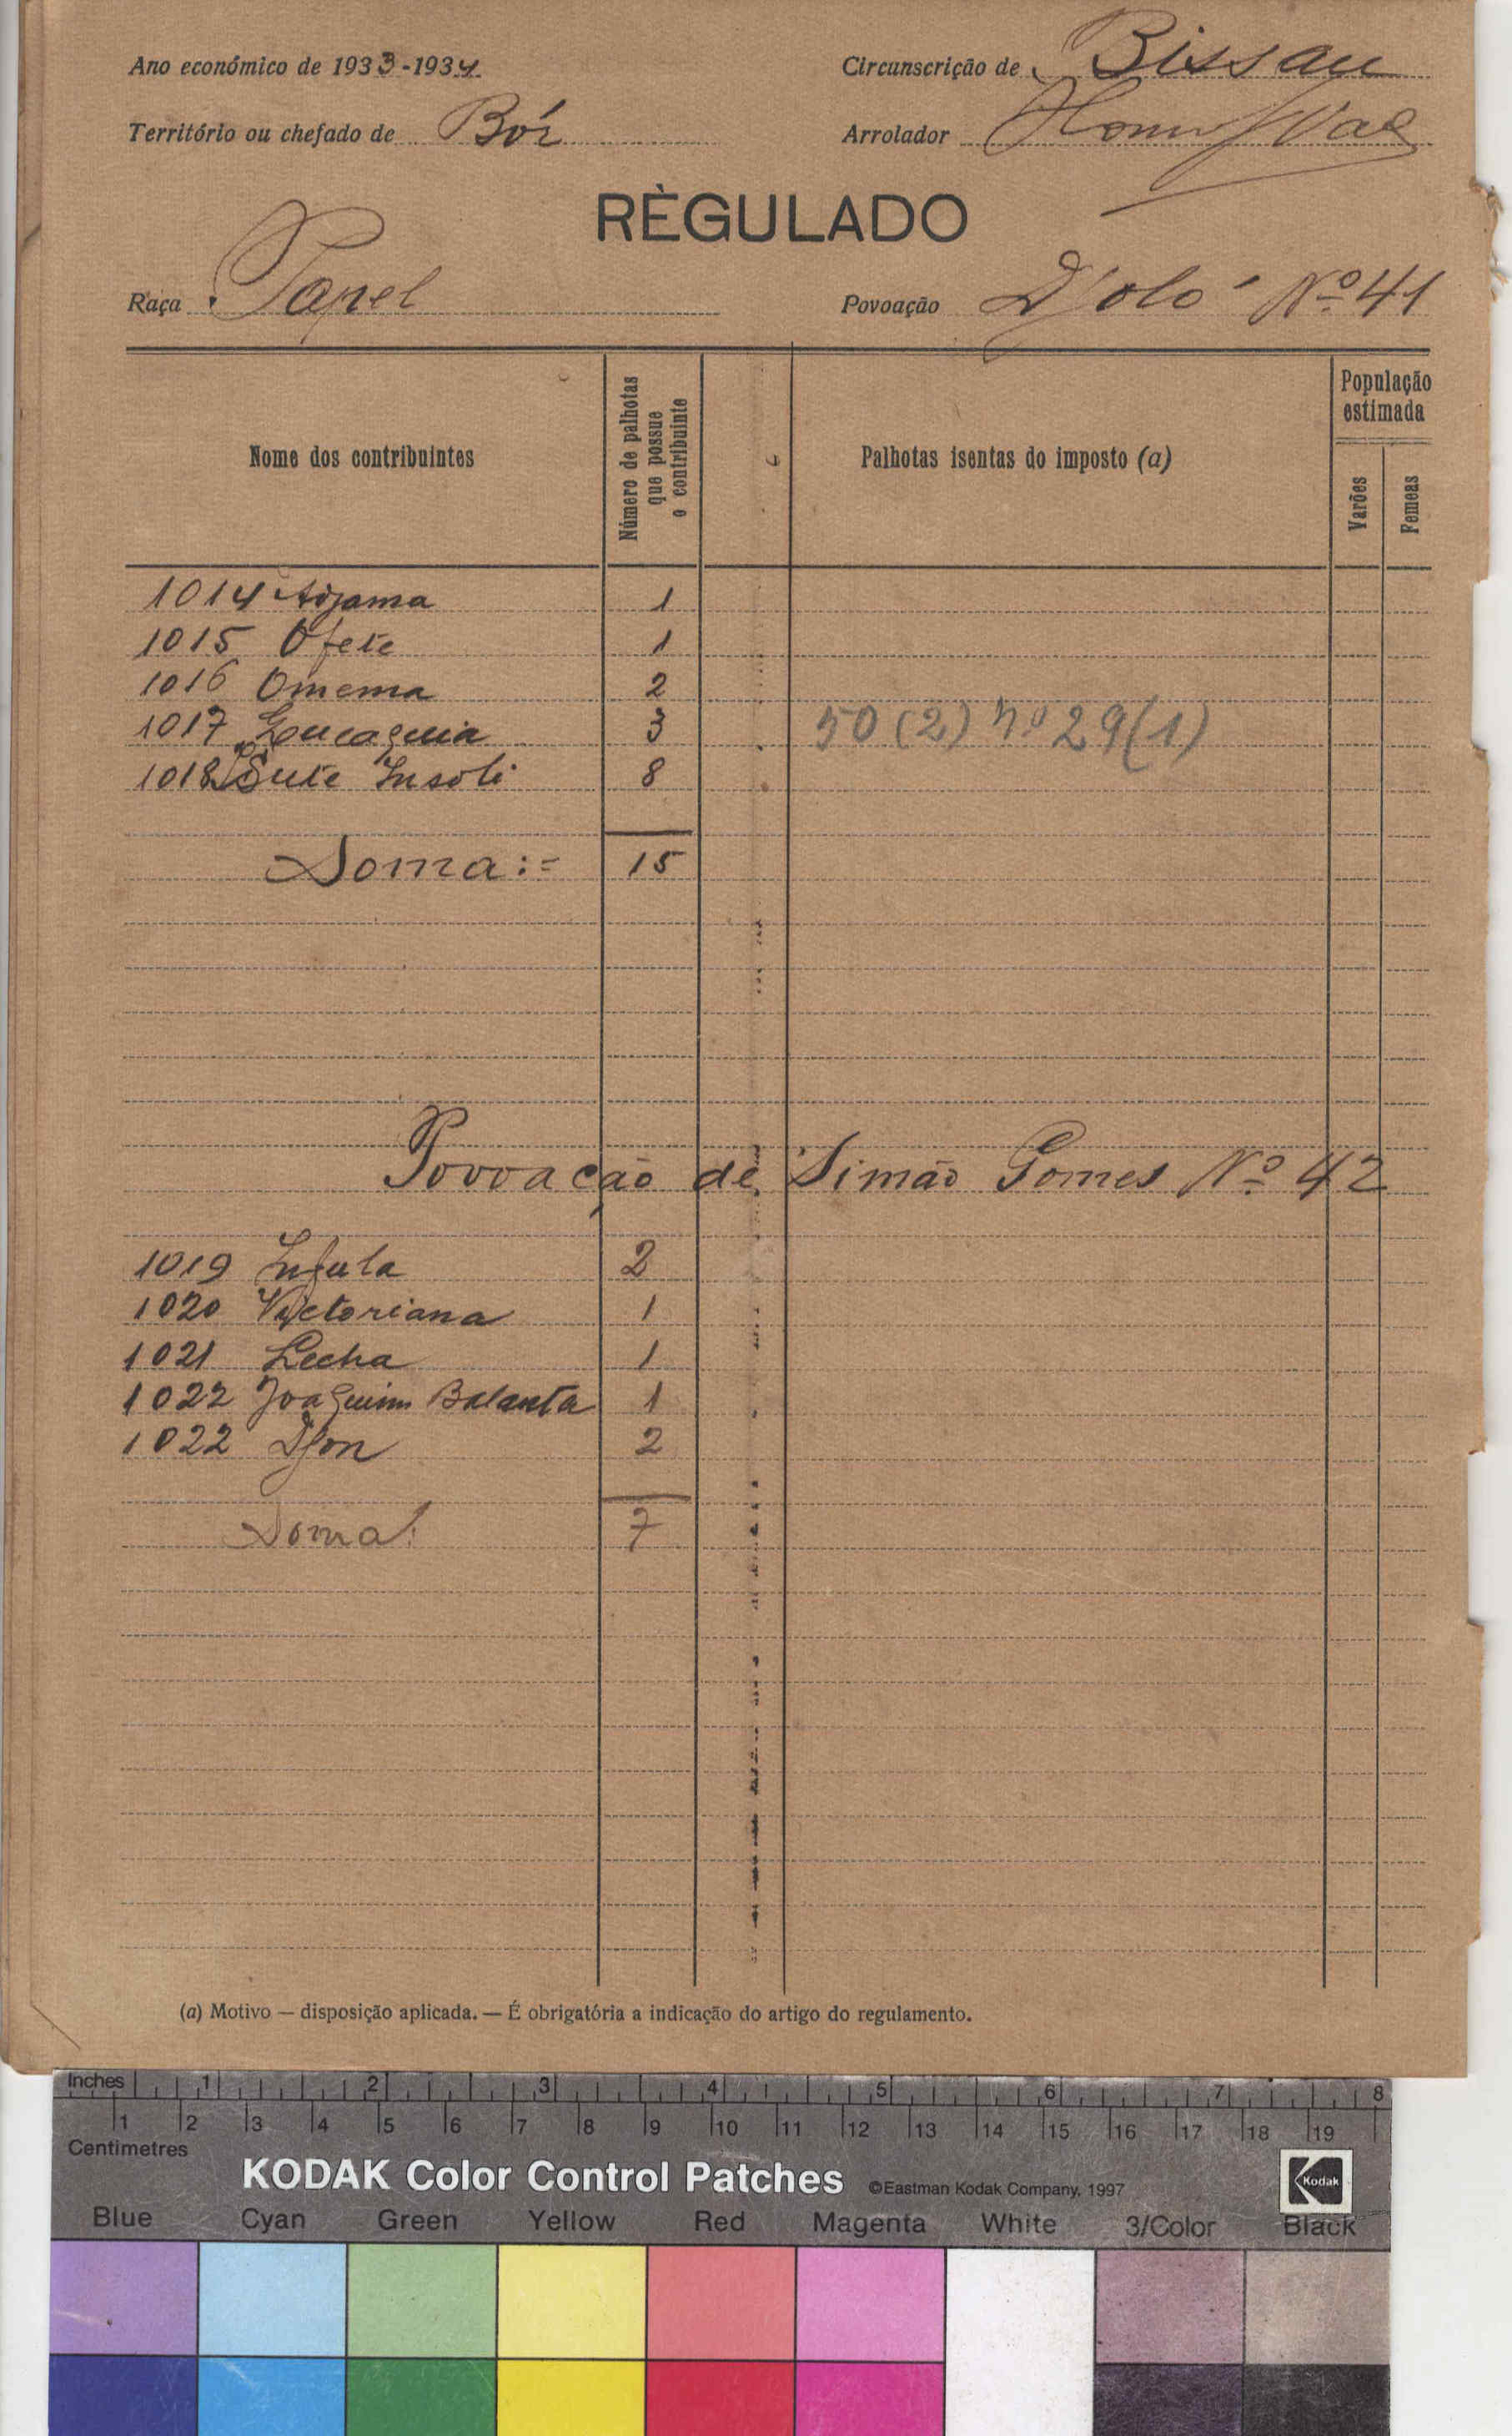 Ano económico de 1933-1934
Circunscrição de Bissau
Território ou chefado de Bór
Arrolador
RÈGULADO
Raça Papel
Povoação D'oló Nº 41
Nome dos contribuintes
Número de palhotas que possue o contribuinte
Palhotas isentas do imposto (a)
População estimada
Varões
Femeas
1014 Adjama 1
1015 Ofete 1
1016 Omema 2
1017 3 50 (2) nº 29 (1)
1018 Sute Insoli 8
Soma:= 15
Povoação de Simão Gomes Nº 42
1019 Infula 2
1020 Victoriana 1
1021 Lecha 1
1022 Joaquim Balanta 1
1022 Djon 2
Soma: 7
(a) Motivo — disposição aplicada. — É obrigatória a indicação do artigo do regulamento.
Inches 1 2 3 4 5 6 7 8
1 2 3 4 5 6 7 8 9 10 11 12 13 14 15 16 17 18 19
Centimetres
KODAK Color Control Patches ©Eastman Kodak Company, 1997 Kodak
Blue Cyan Green Yellow Red Magenta White 3/Color Black